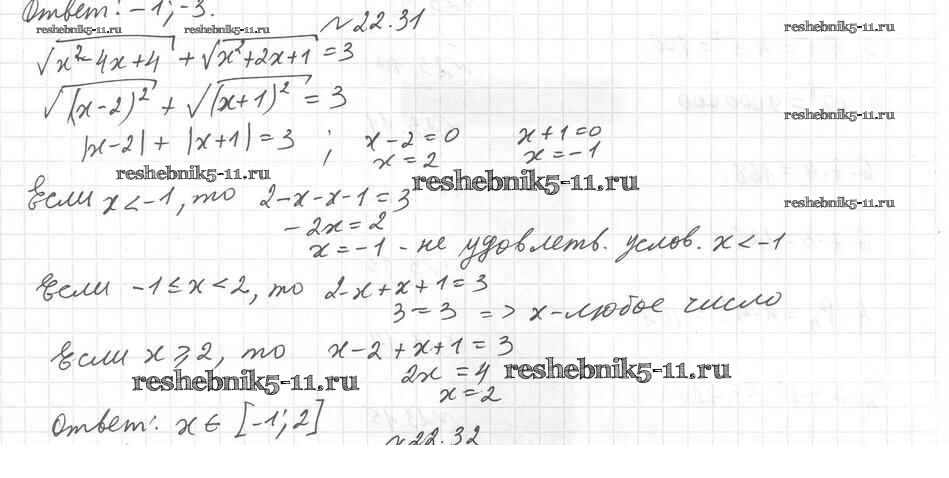 Ответ: -1; -3.
reshebnik5-11.ru reshebnik5-11.ru
№22.31
√x²-4x+4 + √x²+2x+1 = 3
√(x-2)² + √(x+1)² = 3
reshebnik5-11.ru
|x-2| + |x+1| = 3 ; x-2=0 x+1=0
x=2 x=-1
reshebnik5-11.ru reshebnik5-11.ru
Если x<-1, то 2-x-x-1=3
reshebnik5-11.ru
-2x=2
x=-1 - не удовлетв. услов. x<-1
Если -1≤x<2, то 2-x+x+1=3
3=3 => x-любое число
Если x⩾2, то x-2+x+1=3
reshebnik5-11.ru 2x=4 reshebnik5-11.ru
x=2
Ответ: x∈ [-1; 2]
№22.32